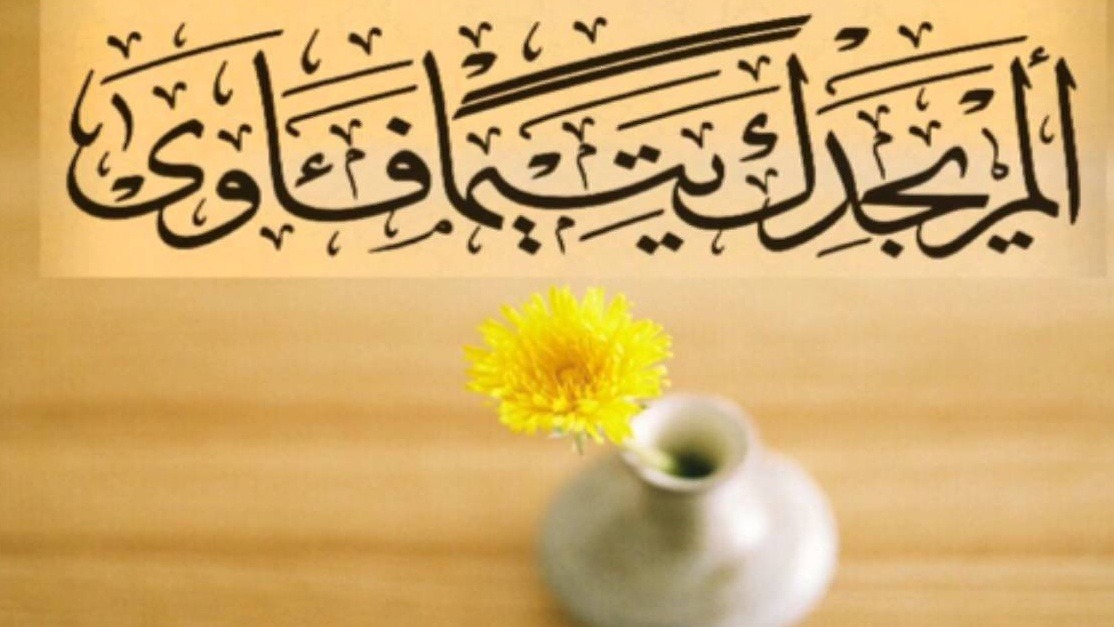 ألم يجدك يتيما فئاوى